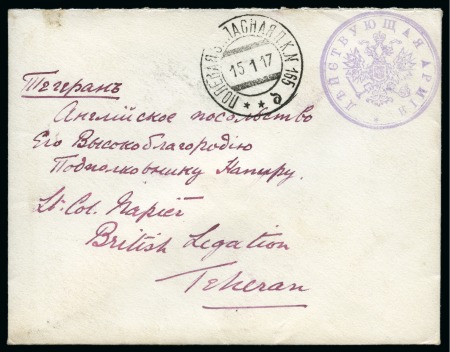 ПОЛЕВАЯ ЗАПАСНАЯ П.К. № 165
15 1 17
ДѢЙСТВУЮЩАЯ АРМІЯ
Тегеранъ
Английское посольство
Его Высокоблагородію
Подполковнику Напиру.
Lt. Col. Napier
British Legation
Teheran